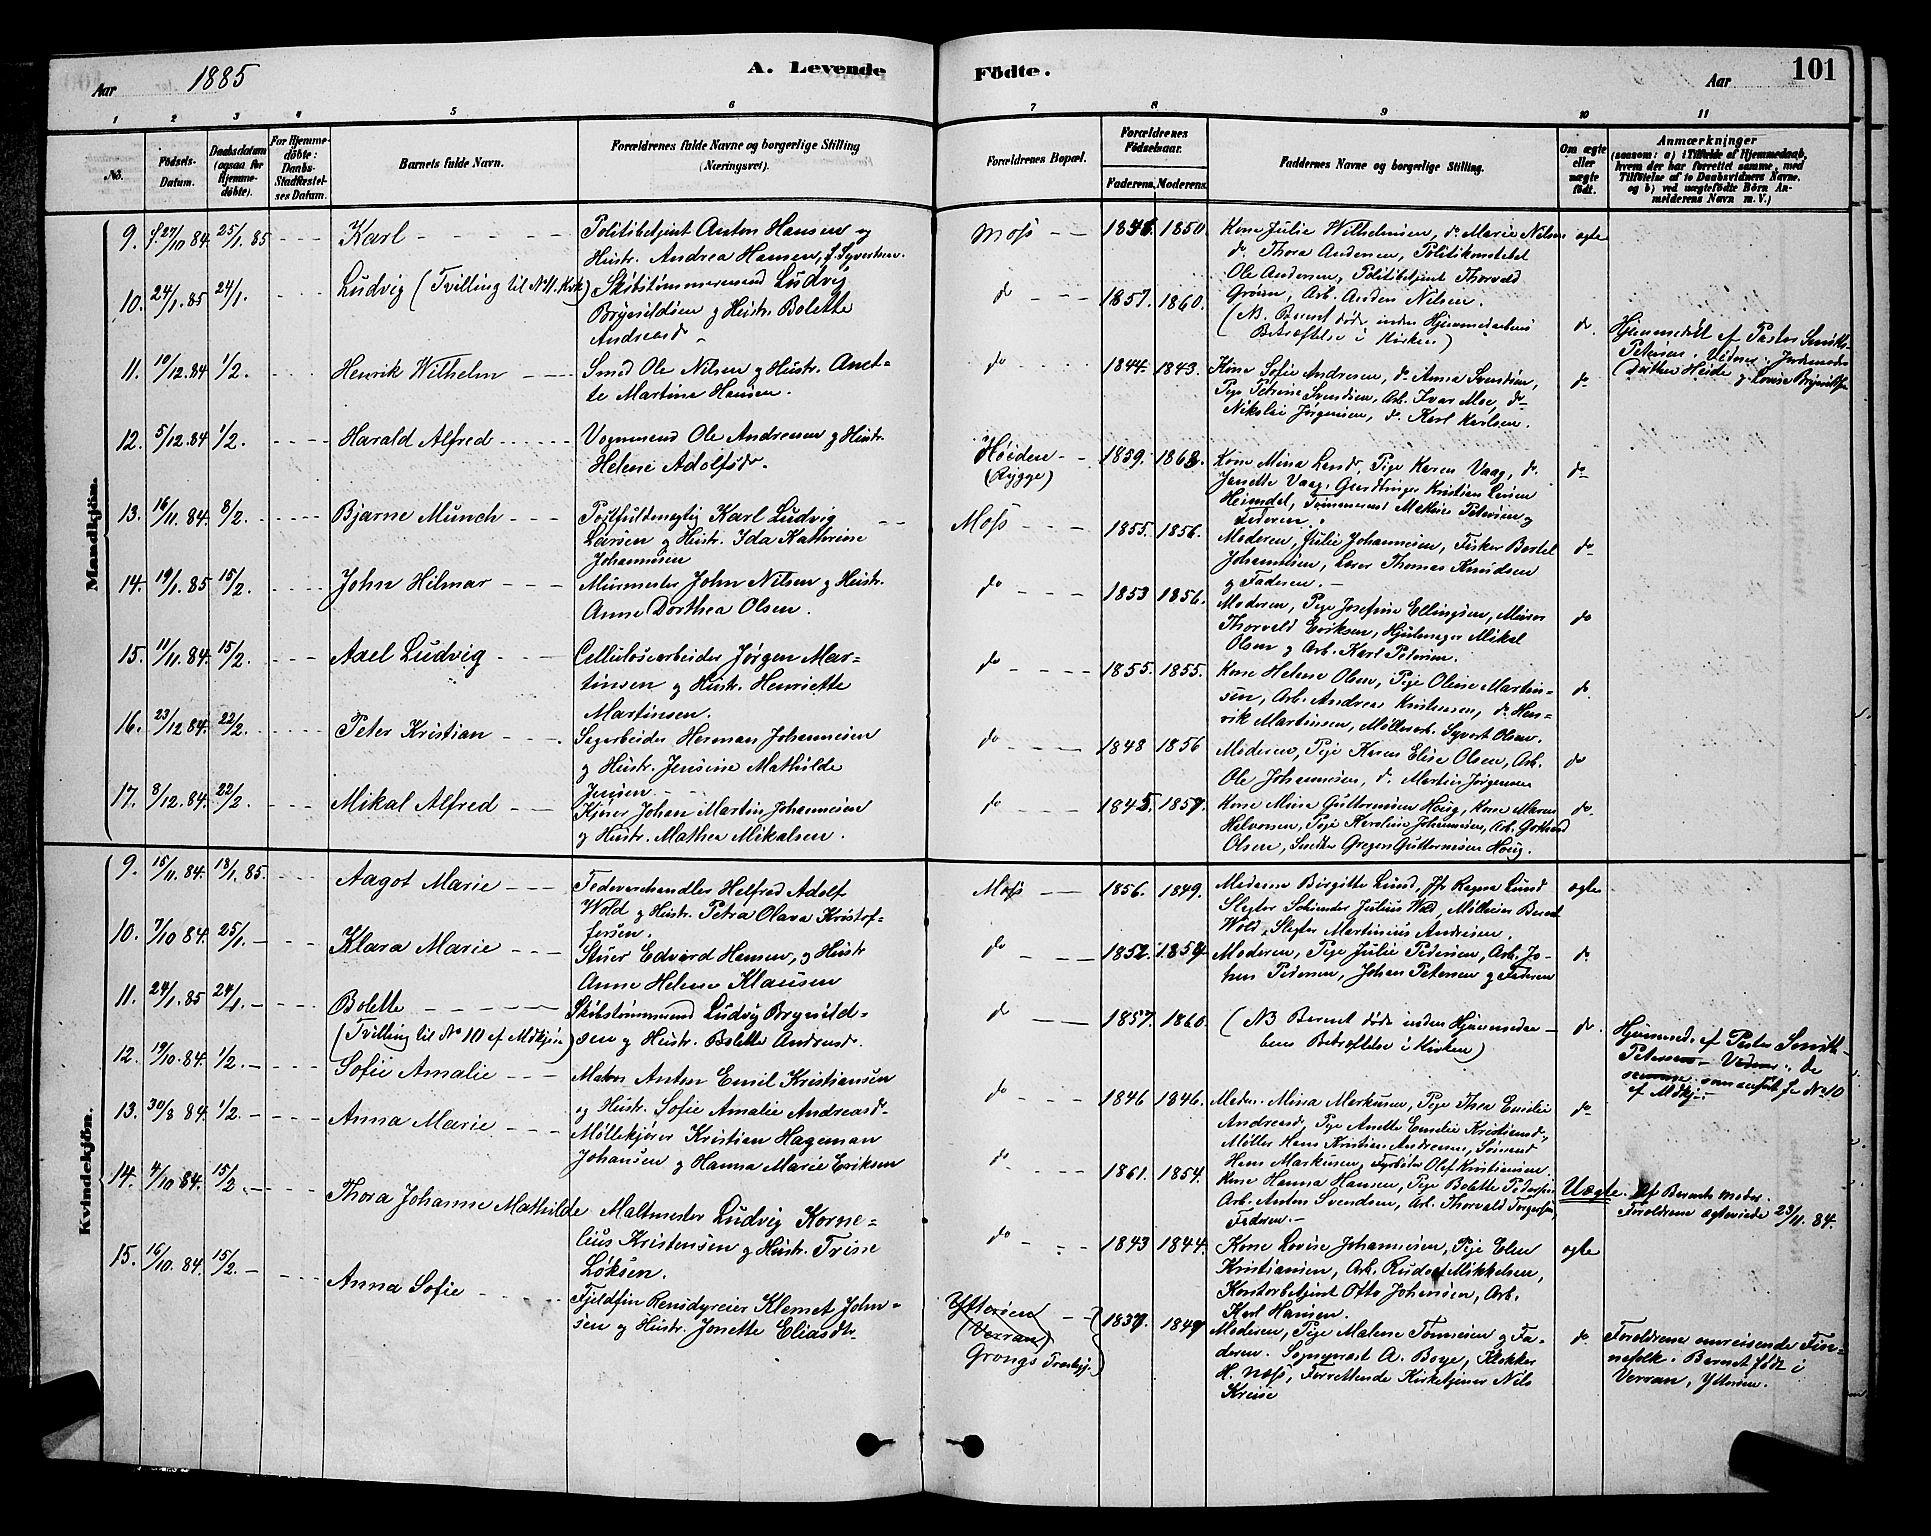 Aar 1885
A. Levende Födte.
Aar
101
1 2 3 4 5 6 7 8 9 10 11
No.
Födsels-Datum.
Daabsdatum (ogsaa for Hjemmedöbte).
For Hjemmedöbte: Daabs-Stadfæstelses Datum.
Barnets fulde Navn.
Forældrenes fulde Navne og borgerlige Stilling (Næringsvei).
Forældrenes Bopæl.
Forældrenes Födselsaar.
Faderens. Moderens.
Faddernes Navne og borgerlige Stilling.
Om ægte eller uægte födt.
Anmærkninger
(saasom: a) i Tilfælde af Hjemmedaab, hvem der har forrettet samme, med Tilföielse af to Daabsvidners Navne, og b) ved uægtefödte Börn Anmelderens Navn m. V.)
Mandkjön.
9. f. 27/10 84. 25/1. 85 Karl
Politibetjent Anton Hansen og
Hustr. Andrea Hansen, f. Syvertsen.
Moss 1850.
Kone Julie Wilhelmsen, do Marie Nilsen
do Thora Andersen, Politikonstabel
Ole Andersen, Politibetjent Thorvald
Grönn, Arb. Anders Nilsen.
ægte
10. 24/1. 85 24/1. Ludvig (Tvilling til No 11. Kvk)
Skibstömmermand Ludvig
Brynildsen og Hustr. Bolette
Andreasd.
do 1857. 1860.
(NB. Barnet döde inden Hjemmedaabens
Bekræftelse i Kirken)
do.
Hjemmedöbt af Pastor Smith-
Petersen. Vidner: Jordemoder
Dorthea Heide og Lovise Brynildsen
11. 19/12. 84 1/2. Henrik Wilhelm
Smed Ole Nilsen og Hustr. Anet-
te Martine Hansen.
do 1844. 1843.
Kone Sofie Andresen, do Anna Svendsen,
Pige Petrine Svendsen, Arb. Ivar Moe, do
Nikolai Jörgensen, do. Karl Karlsen.
do
12. 5/12. 84 1/2. Harald Alfred
Vognmand Ole Andresen og Hustr.
Helene Adolfsdr.
Höiden
(Rygge)
1859. 1862.
Kone Mina Lund, Pige Karen Vaag, do.
Janette Vaag, Gaardbruger Kristian Larsen
Heimdal, Tömmermand Mathias Petersen og
Faderen.
do
13. 16/11. 84. 8/2. Bjarne Münch
Postfuldmægtig Karl Ludvig
Larsen og Hustr. Ida Kathrine
Johannesen
Moss 1855. 1856.
Moderen, Julie Johannesen, Fisker Bertel
Johannesen, Lærer Thomas Knudsen
og Faderen.
do
14. 19/1. 85 15/2. John Hilmar
Murmester John Nilsen og Hustr.
Anne Dorthea Olsen.
do 1853 1856.
Moderen, Pige Josefine Ellingsen, Murer
Thorvald Eriksen, Hjulmager Mikal
Olsen og Arb. Karl Petersen.
do
15. 11/11. 84. 15/2. Axel Ludvig
Cellulosearbeider Jörgen Mar-
tinsen og Hustr. Henriette
Martinsen.
do 1855. 1855.
Kone Helene Olsen, Pige Oline Martin-
sen, Arb. Andreas Kristensen, do. Hen-
rik Martinsen, Möllerarb. Syvert Olsen.
do.
16. 23/12. 84. 22/2. Peter Kristian
Sagarbeider Herman Johannesen
og Hustr. Jensine Mathilde
Jensen
do 1848 1856
Moderen, Pige Karen Elise Olsen, Arb.
Ole Johannesen, do. Martin Jörgensen
do
17. 3/12. 84. 22/2. Mikal Alfred
Kjörer Johan Martin Johannesen
og Hustr. Mathea Mikalsen.
do 1845. 1857.
Kone Mina Guttormsen Houg, Kone Maren
Halvorsen, Pige Karoline Johannesen, Arb. Gothard
Olsen, Snedker Gregers Guttormsen Houg.
do.
Kvindekjön.
9. 15/11. 84. 18/1. 85. Aagot Marie
Fedevarehandler Helfred Adolf
Wold og Hustr. Petra Olava Kristof-
fersen.
Moss 1856. 1849.
Madame Birgitte Lund, Jfr Ragna Lund
Slagter Julius Wold, Bernt
Wold, Slagter Martinius Andresen.
ægte
10. 7/10 84. 25/1. Klara Marie
Stuer Edvard Hansen, og Hustr
Anne Helene Klausen
do 1852. 1859
Moderen, Pige Julie Pedersen, Arb. Jo-
han Pedersen, Johan Petersen og Faderen
do.
11. 24/1. 85 24/1 Bolette
(Tvilling til No 10 af Mdkjön)
Skibstömmermand Ludvig Brynild-
sen og Hustr. Bolette Andreasd.
do 1857. 1860.
(NB Barnet döde inden Hjemmedaa-
bens Bekræftelse i Kirken)
do.
Hjemmed. af Pastor Smith-
Petersen. Vidner: de
samme som anfört f. No 10
af Mdkj.
12. 19/10. 84 1/2. Sofie Amalie
Matros Anton Emil Kristiansen
og Hustr. Sofie Amalie Andreasd.
do 1846 1846.
Madm. Mina Markusen, Pige Thea Emilie
Andreasd, Pige Anette Emilie Kristiansd.,
Möller Hans Kristian Andresen, Sömand
Hans Markusen, Fyrböter Olaf Kristiansen.
do
13. 30/8 84. 1/2. Anna Marie
Möllekjörer Kristian Hageman
Johansen og Hanna Marie Eriksen
do 1861. 1854.
Kone Hanna Hansen, Pige Bolette Pedersen
Arb. Anton Svendsen, Arb. Thorvald Torgersen,
Faderen.
Uægte.
Af Barnets moder.
Forældrene ægteviede 23/11. 84.
14. 4/10. 84. 15/2 Thora Johanne Mathilde
Maltmester Ludvig Korne-
lius Kristensen og Hustr. Trine
Löksen.
do 1843 1844.
Kone Lovise Johannesen, Pige Elen
Kristiansen, Arb. Rudolf Mikkelsen,
Kontorbetjent Otto Johansen, Arb.
Karl Hansen.
ægte
15. 16/10. 84. 15/2. Anna Sofie
Fjeldfin Rensdyreier Klemet John-
sen og Hustr. Jonette Eliasdtr.
Ytteröen
(Verran)
Grongs Præstegj.
1837. 1849
Moderen, Pige Malene Tönnesen og Fa-
deren. Sogneprest A. Boye, Klokker
H. Moss, Forrettende Kirketjener Nils
Kruse
do
Forældrene omreisende Fin-
nefolk. Barnet födt i
Verran, Ytterøen.